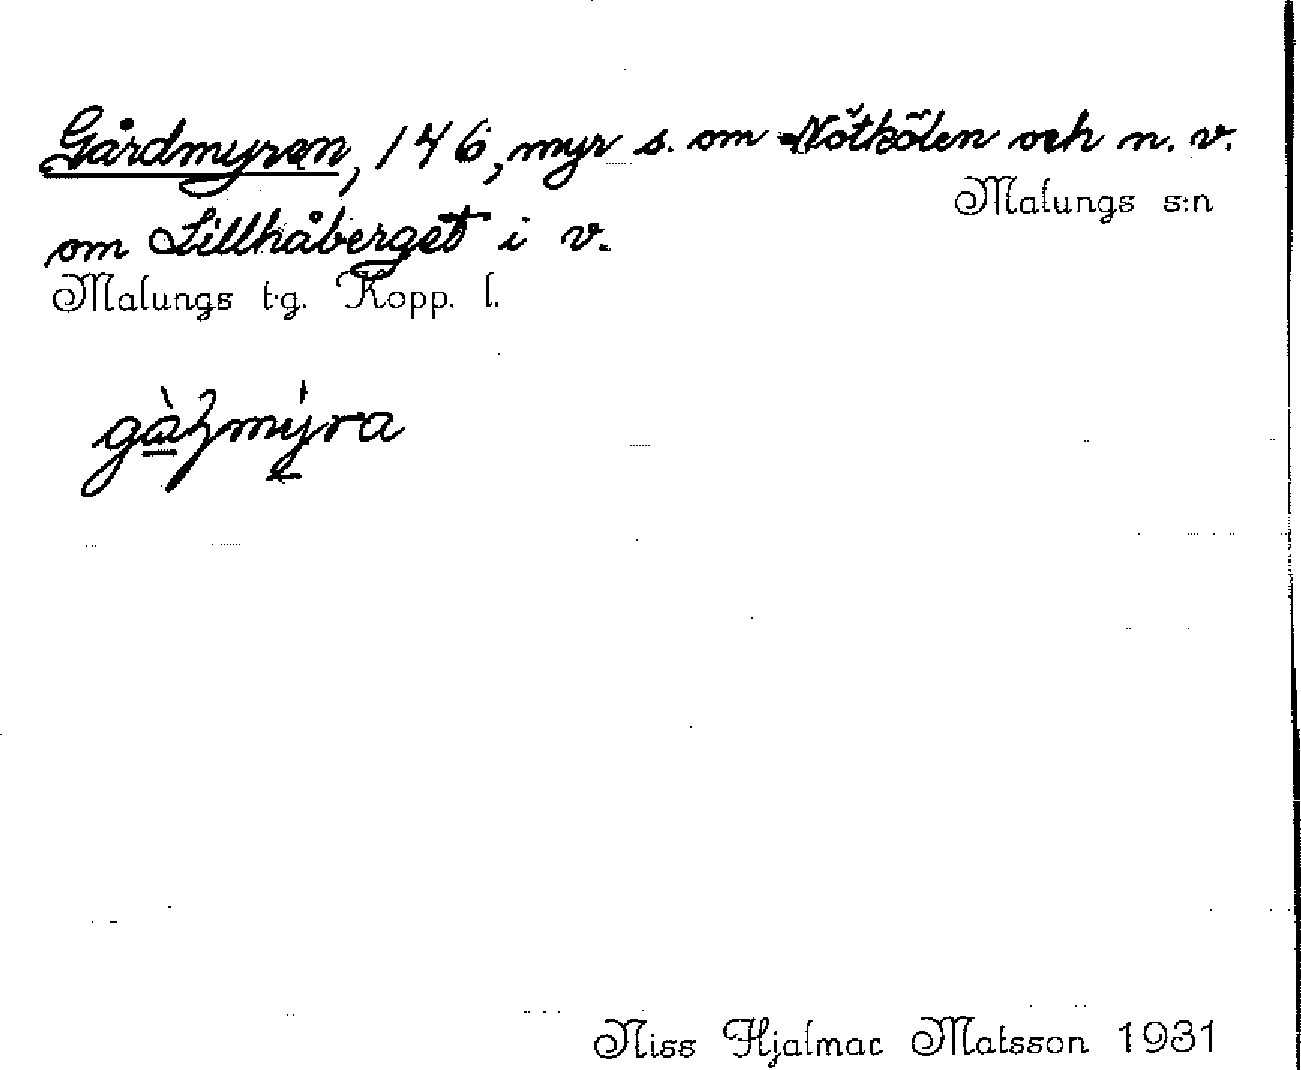 Gårdmyren, 146, myr s. om Nötkölen och n. v.
Malungs s:n
om Lillhåberget i v.
Malungs t.g. Kopp. l.
Niss Hjalmar Matsson 1931